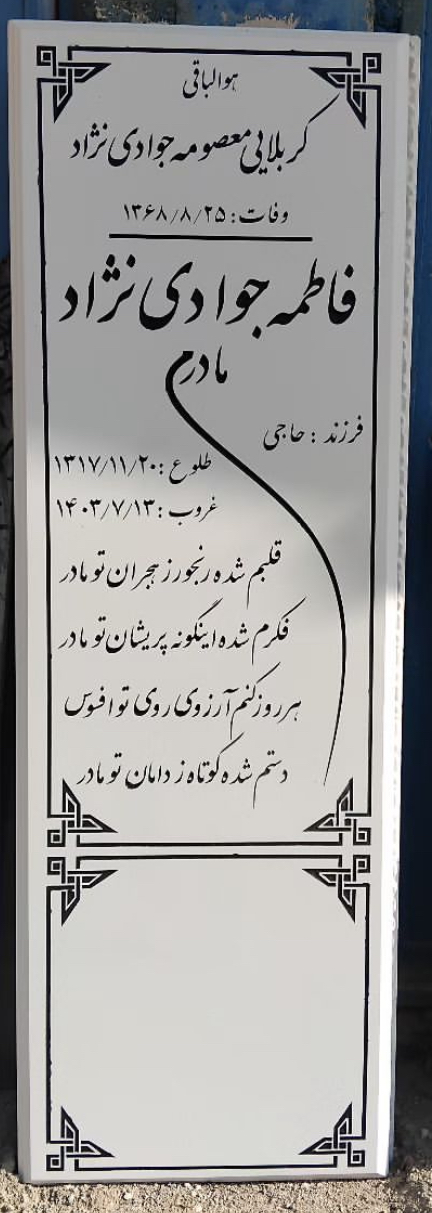 هوالباقی
کربلایی معصومه جوادی نژاد
وفات: ۱۳۶۸/۸/۲۵
فاطمه جوادی نژاد
مادرم
فرزند : حاجی
طلوع : ۱۳۱۷/۱۱/۲۰
غروب : ۱۴۰۳/۷/۱۳
قلبم شده رنجور ز هجران تو مادر
فکرم شده اینگونه پریشان تو مادر
هر روز کنم آرزوی روی تو افسوس
دستم شده کوتاه ز دامان تو مادر